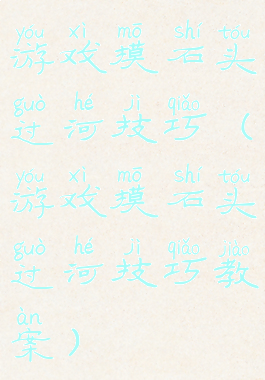 yóu xì mō shí tóu
游戏摸石头
guò hé jì qiǎo
过河技巧（
yóu xì mō shí tóu
游戏摸石头
guò hé jì qiǎo jiào
过河技巧教
àn
案）